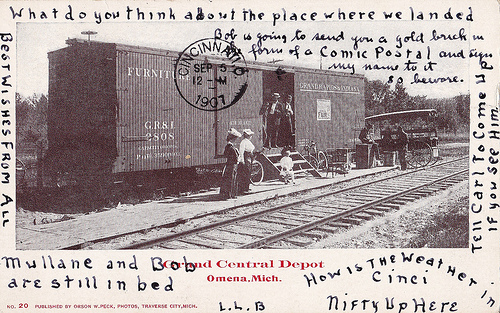 What do you think about the place where we landed
Bob is going to send you a gold brick in
the form of a Comic Postal and sign
my name to it
so beware.
Best Wishes From All
FURNIT
G.R.& I.
2808
GRAND RAPIDS & INDIANA
CINCINNATI, O
SEP 5
12 - M
1907
Tell Carl To Come Up
If you see Him
Mullane and Bob
are still in bed
Grand Central Depot
Omena, Mich.
How is The Weather in
Cinci
Nifty Up Here
L.L.B
NO. 20 PUBLISHED BY ORSON W. PECK, PHOTOS, TRAVERSE CITY, MICH.